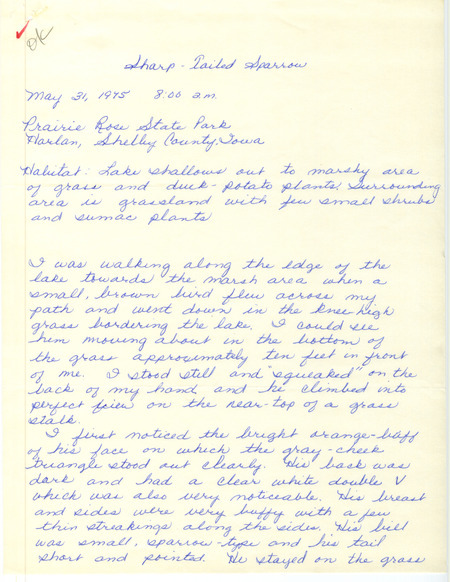 OK
Sharp-Tailed Sparrow
May 31, 1975 8:00 a.m.
Prairie Rose State Park
Harlan, Shelby County, Iowa
Habitat: Lake shallows out to marshy area
of grass and duck-potato plants. Surrounding
area is grassland with few small shrubs
and sumac plants
I was walking along the edge of the
lake towards the marsh area when a
small, brown bird flew across my
path and went down in the knee high
grass bordering the lake. I could see
him moving about in the bottom of
the grass approximately ten feet in front
of me. I stood still and "squeaked" on the
back of my hand and he climbed into
perfect view on the near-top of a grass
stalk.
I first noticed the bright orange-buff
of his face on which the gray-cheek
triangle stood out clearly. His back was
dark and had a clear white double V
which was also very noticeable. His breast
and sides were very buffy with a few
thin streakings along the sides. His bill
was small, sparrow-type and his tail
short and pointed. He stayed on the grass